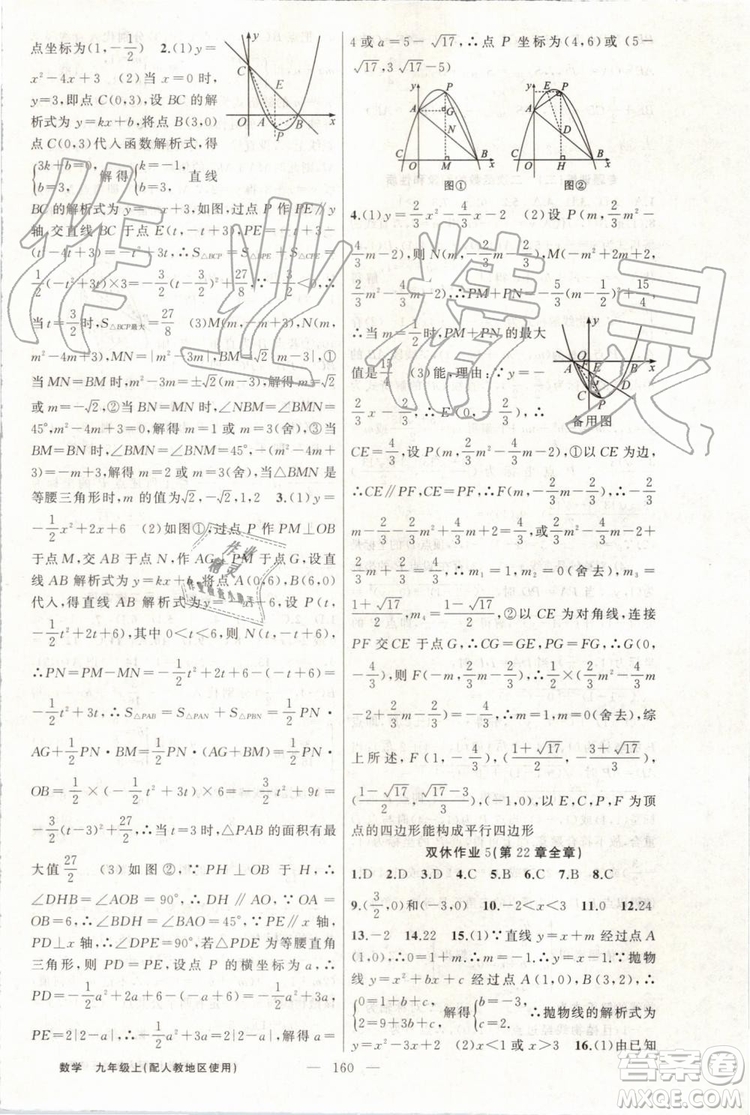 点坐标为(1,-1/2) 2.(1)y=
x²-4x+3 (2)当 x=0 时,
y=3,即点 C(0,3),设 BC 的解
析式为 y=kx+b,将点 B(3,0)
点 C(0,3)代入函数解析式,得
{3k+b=0, b=3, 解得{k=-1, b=3, 直线
BC 的解析式为 y=-x+3,如图,过点 P 作 PE∥y
轴,交直线 BC 于点 E(t,-t+3),PE=-t+3-
(t²-4t+3)=-t²+3t,∴S△BCP=S△BPE+S△CPE=
1/2(-t²+3t)×3=-3/2(t-3/2)²+27/8,∵-3/2<0,∴
当 t=3/2时,S△BCP最大=27/8 (3)M(m,-m+3),N(m,
m²-4m+3),MN=|m²-3m|,BM=√2|m-3|,①
当 MN=BM 时,m²-3m=±√2(m-3),解得 m=√2
或 m=-√2,②当 BN=MN 时,∠NBM=∠BMN=
45°,m²-4m+3=0,解得 m=1 或 m=3(舍),③当
BM=BN 时,∠BMN=∠BNM=45°,-(m²-4m+
3)=-m+3,解得 m=2 或 m=3(舍),当△BMN 是
等腰三角形时,m 的值为√2,-√2,1,2 3.(1)y=
-1/2x²+2x+6 (2)如图①,过点 P 作 PM⊥OB
于点 M,交 AB 于点 N,作 AG⊥PM 于点 G,设直线
AB 解析式为 y=kx+b,将点 A(0,6),B(6,0)
代入,得直线 AB 解析式为 y=-x+6,设 P(t,
-1/2t²+2t+6),其中 0<t<6,则 N(t,-t+6),
∴PN=PM-MN=-1/2t²+2t+6-(-t+6)=
-1/2t²+3t,∴S△PAB=S△PAN+S△PBN=1/2PN·
AG+1/2PN·BM=1/2PN(AG+BM)=1/2PN·
OB=1/2×(-1/2t²+3t)×6=-3/2t²+9t=
-3/2(t-3)²+27/2,∴当 t=3 时,△PAB 的面积有最
大值27/2 (3)如图②,∵PH⊥OB,∴∠DHB=
∠AOB=90°,∴DH∥AO,∵OA=OB=6,
∴∠BDH=∠BAO=45°,∵PE∥x 轴,
PD⊥x 轴,∴∠DPE=90°,若△PDE 为等腰直角三角形,
则 PD=PE,设点 P 的横坐标为 a,∴
PD=-1/2a²+2a+6-(-a+6)=-1/2a²+3a,
PE=2|2-a|,∴-1/2a²+3a=2|2-a|,解得 a=
4 或 a=5-√17,∴点 P 坐标为(4,6)或(5-
√17,3√17-5)
图① 图②
4.(1)y=2/3x²-4/3x-2 (2)设 P(m,2/3m²-
4/3m-2),则 N(m,-2/3m-2/3),M(-m²+2m+2,
2/3m²-4/3m-2),∴PM+PN=-5/3(m-1/2)²+15/4
∴当 m=1/2时,PM+PN 的最大
值是15/4 (3)能,理由:∵y=-
2/3x-2/3,∴E(0,-2/3),∴
备用图
CE=4/3,设 P(m,2/3m²-4/3m-2),①以 CE 为边,
∴CE∥PF,CE=PF,∴F(m,-2/3m-2/3),∴-2/3
m-2/3-2/3m²+4/3m+2=4/3,或2/3m²-4/3m-2+
2/3m+2/3=4/3,∴m₁=1,m₂=0(舍去),m₃=
(1+√17)/2,m₄=(1-√17)/2,②以 CE 为对角线,连接
PF 交 CE 于点 G,∴CG=GE,PG=FG,∴G(0,
-4/3),则 F(-m,2/3m-2/3),∴1/2×(2/3m²-4/3
m-2+2/3m-2/3)=-4/3,∴m=1,m=0(舍去),综
上所述,F(1,-4/3),((1+√17)/2,-(3+√17)/3),
((1-√17)/2,(√17-3)/3),(-1,0),以 C,E,P,F 为顶
点的四边形能构成平行四边形
双休作业 5(第 22 章全章)
1.D 2.D 3.D 4.C 5.D 6.C 7.B 8.C
9.(3/2,0)和(-3/2,0) 10.-2<x<3 11.0 12.24
13.-2 14.22 15.(1)∵直线 y=x+m 经过点 A
(1,0),∴0=1+m,∴m=-1,∴y=x-1,∵抛物
线 y=x²+bx+c 经过点 A(1,0),B(3,2),∴
{0=1+b+c, 2=9+3b+c, 解得{b=-3, c=2, ∴抛物线的解析式为
y=x²-3x+2 (2)x<1 或 x>3 16.(1)由已知
数学 九年级上(配人教地区使用) — 160 —